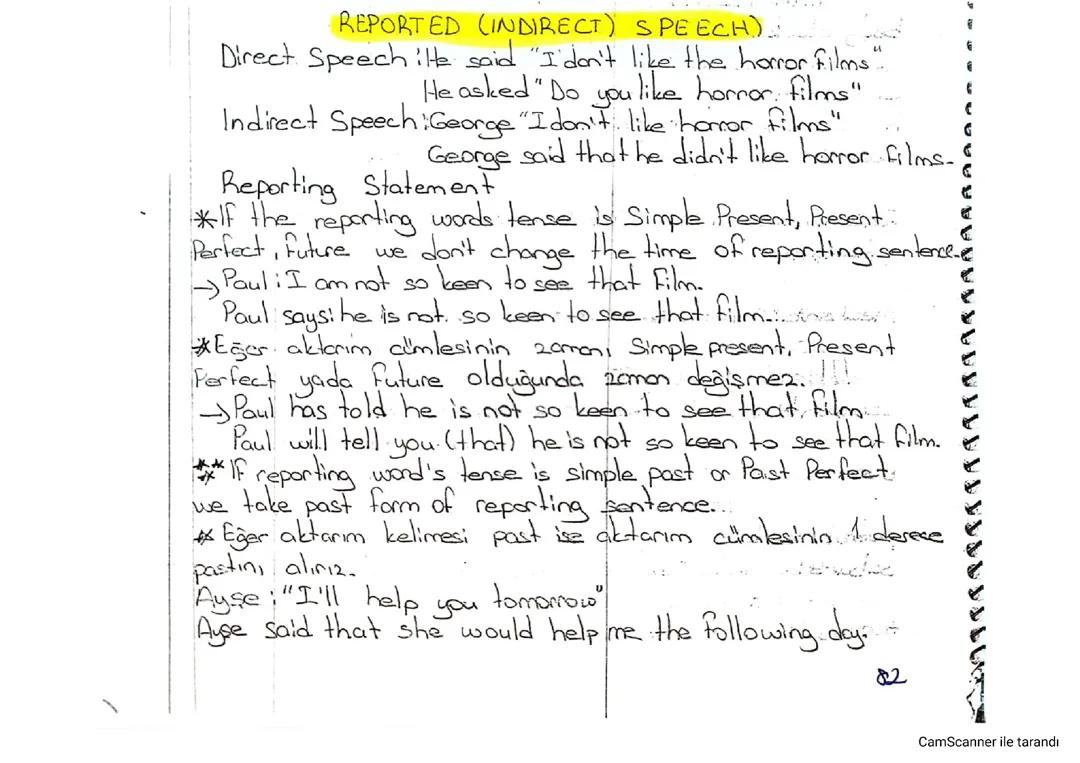 REPORTED (INDIRECT) SPEECH)
Direct Speech : He said "I don't like the horror films".
He asked "Do you like horror films"
Indirect Speech : George "I don't like horror films"
George said that he didn't like horror films.
Reporting Statement
*If the reporting words tense is Simple Present, Present
Perfect, future we don't change the time of reporting sentence.
→ Paul : I am not so keen to see that film.
Paul says: he is not so keen to see that film.
*Eğer aktarım cümlesinin zamanı Simple present, Present
Perfect yada future olduğunda zaman değişmez. !!!
→ Paul has told he is not so keen to see that film.
Paul will tell you (that) he is not so keen to see that film.
** If reporting word's tense is simple past or Past Perfect
we take past form of reporting sentence.
* Eğer aktarım kelimesi past ise aktarım cümlesinin 1 derece
pastını alırız.
Ayşe : "I'll help you tomorrow"
Ayşe said that she would help me the following day.
82
CamScanner ile tarandı